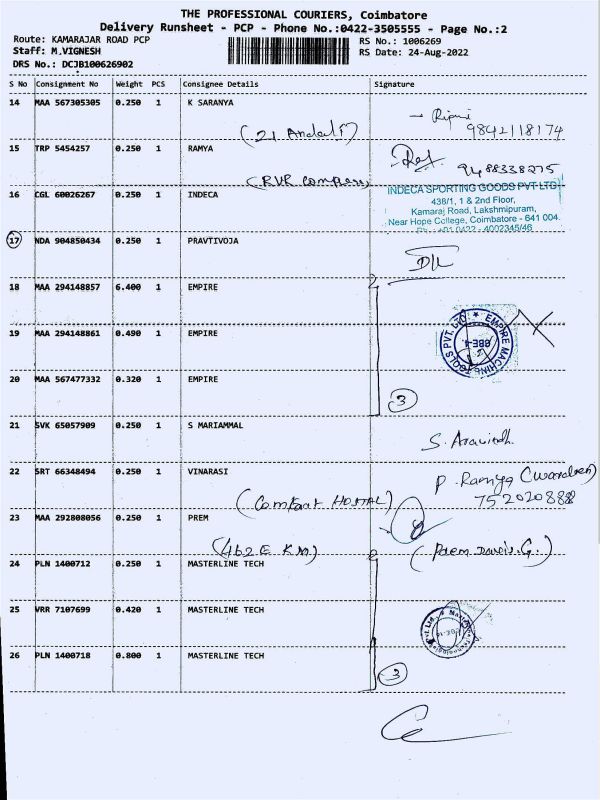 THE PROFESSIONAL COURIERS, Coimbatore
Delivery Runsheet - PCP - Phone No.:0422-3505555 - Page No.:2
Route: KAMARAJAR ROAD PCP
Staff: M.VIGNESH
DRS No.: DCJB100626902
RS No.: 1006269
RS Date: 24-Aug-2022
S No Consignment No Weight PCS Consignee Details Signature
14 MAA 567305305 0.250 1 K SARANYA
9842118174
15 TRP 5454257 0.250 1 RAMYA
9488338275
16 CGL 60026267 0.250 1 INDECA
INDECA SPORTING GOODS PVT LTD
438/1, 1 & 2nd Floor,
Kamaraj Road, Lakshmipuram,
Near Hope College, Coimbatore - 641 004.
Ph : +91 0422 - 4002345/46
17 NDA 904850434 0.250 1 PRAVTIVOJA
18 MAA 294148857 6.400 1 EMPIRE
19 MAA 294148861 0.490 1 EMPIRE
EMPIRE MACHINE TOOLS PVT. LTD.
20 MAA 567477332 0.320 1 EMPIRE
3
21 SVK 65057909 0.250 1 S MARIAMMAL
S. Aravindh
22 SRT 66348494 0.250 1 VINARASI
P. Ramya (warden)
7520208888
(Comfort HOSTAL)
23 MAA 292808056 0.250 1 PREM
(462 E KM)
24 PLN 1400712 0.250 1 MASTERLINE TECH
25 VRR 7107699 0.420 1 MASTERLINE TECH
26 PLN 1400718 0.800 1 MASTERLINE TECH
3